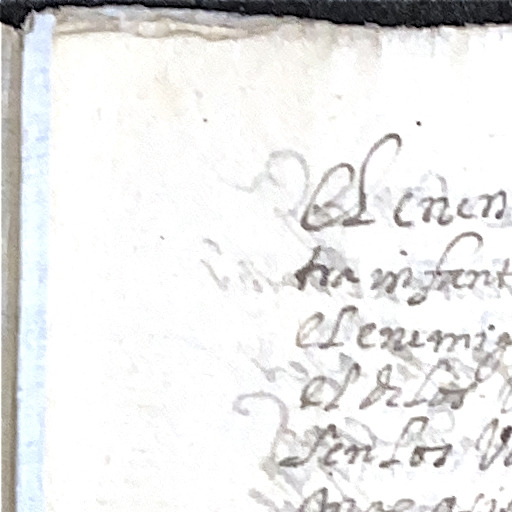 El enen
tra infant
el enemig
el de los
sen los